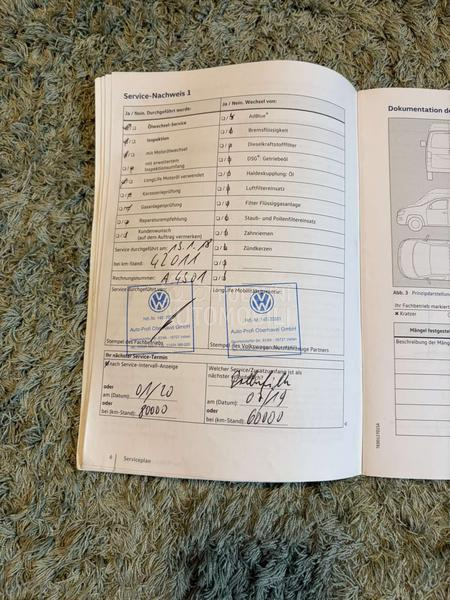 Service-Nachweis 1
Ja / Nein. Durchgeführt wurde:
Ja / Nein. Wechsel von:
Ölwechsel-Service
AdBlue®
Inspektion
Bremsflüssigkeit
mit Motorölwechsel
Dieselkraftstofffilter
mit erweitertem Inspektionsumfang
DSG® Getriebeöl
LongLife Motoröl verwendet
Haldexkupplung: Öl
Karosserieprüfung
Luftfiltereinsatz
Gasanlagenprüfung
Filter Flüssiggasanlage
Reparaturempfehlung
Staub- und Pollenfiltereinsatz
Kundenwunsch
(auf dem Auftrag vermerken)
Zahnriemen
Zündkerzen
Service durchgeführt am: 15.1.18
bei km-Stand: 42011
Rechnungsnummer: A 4501
Service durchgeführt von:
LongLife Mobilitätsgarantie:
Auto-Profi Oberhavel GmbH
Auto-Profi Oberhavel GmbH
Stempel des Fachbetriebs
Stempel des Volkswagen Nutzfahrzeuge Partners
Ihr nächster Service-Termin
nach Service-Intervall-Anzeige
Welcher Service/Zusatzumfang ist als nächster
oder
am (Datum): 01/20
am (Datum): 01/19
oder
oder
bei (km-Stand): 80000
bei (km-Stand): 60000
6 Serviceplan
Dokumentation de
Abb. 3 Prinzipdarstellun
Ihr Fachbetrieb markiert
× Kratzer
Mängel festgeste
Beschreibung der Mäng